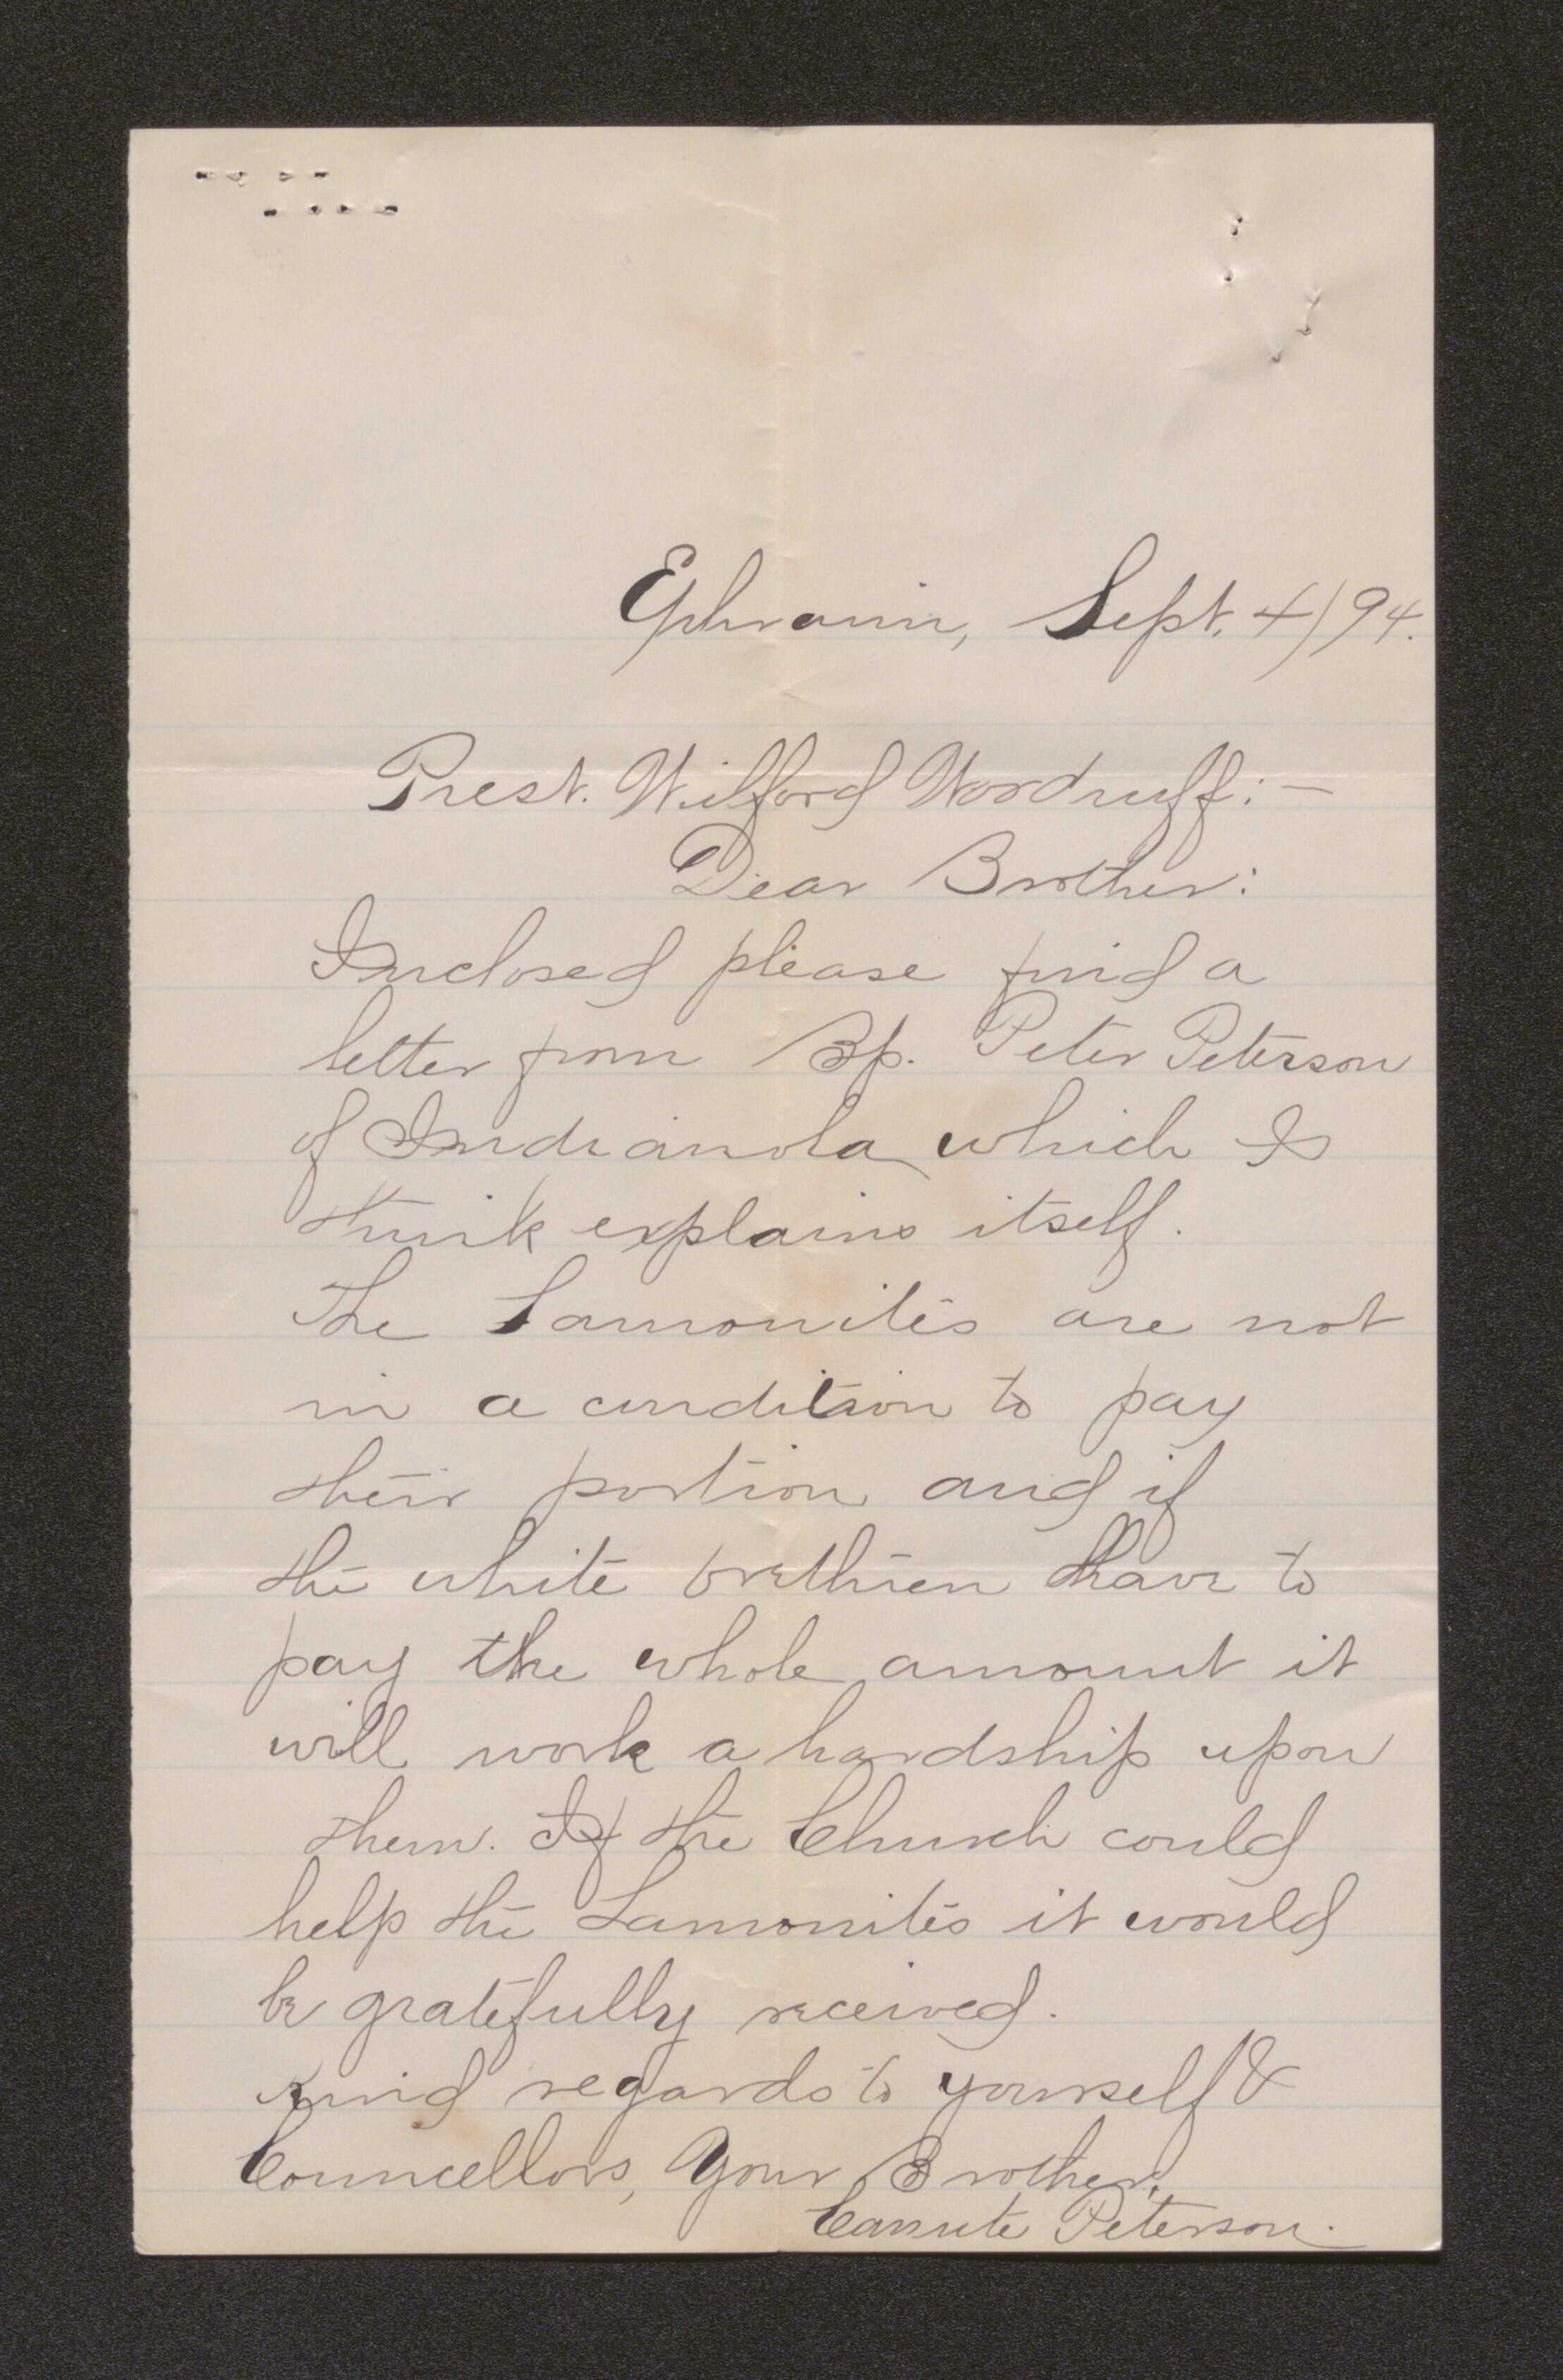 Ephraim, Sept. 4/94.
Prest. Wilford Woodruff:—
Dear Brother:
Inclosed please find a
letter from Bp. Peter Peterson
of Indianola which I
think explains itself.
The Lamonites are not
in a condition to pay
their portion and if
the white brethren have to
pay the whole amount it
will work a hardship upon
them. If the Church could
help the Lamonites it would
be gratefully received.
Kind regards to yourself &
Councellors, Your Brother,
Canute Peterson.